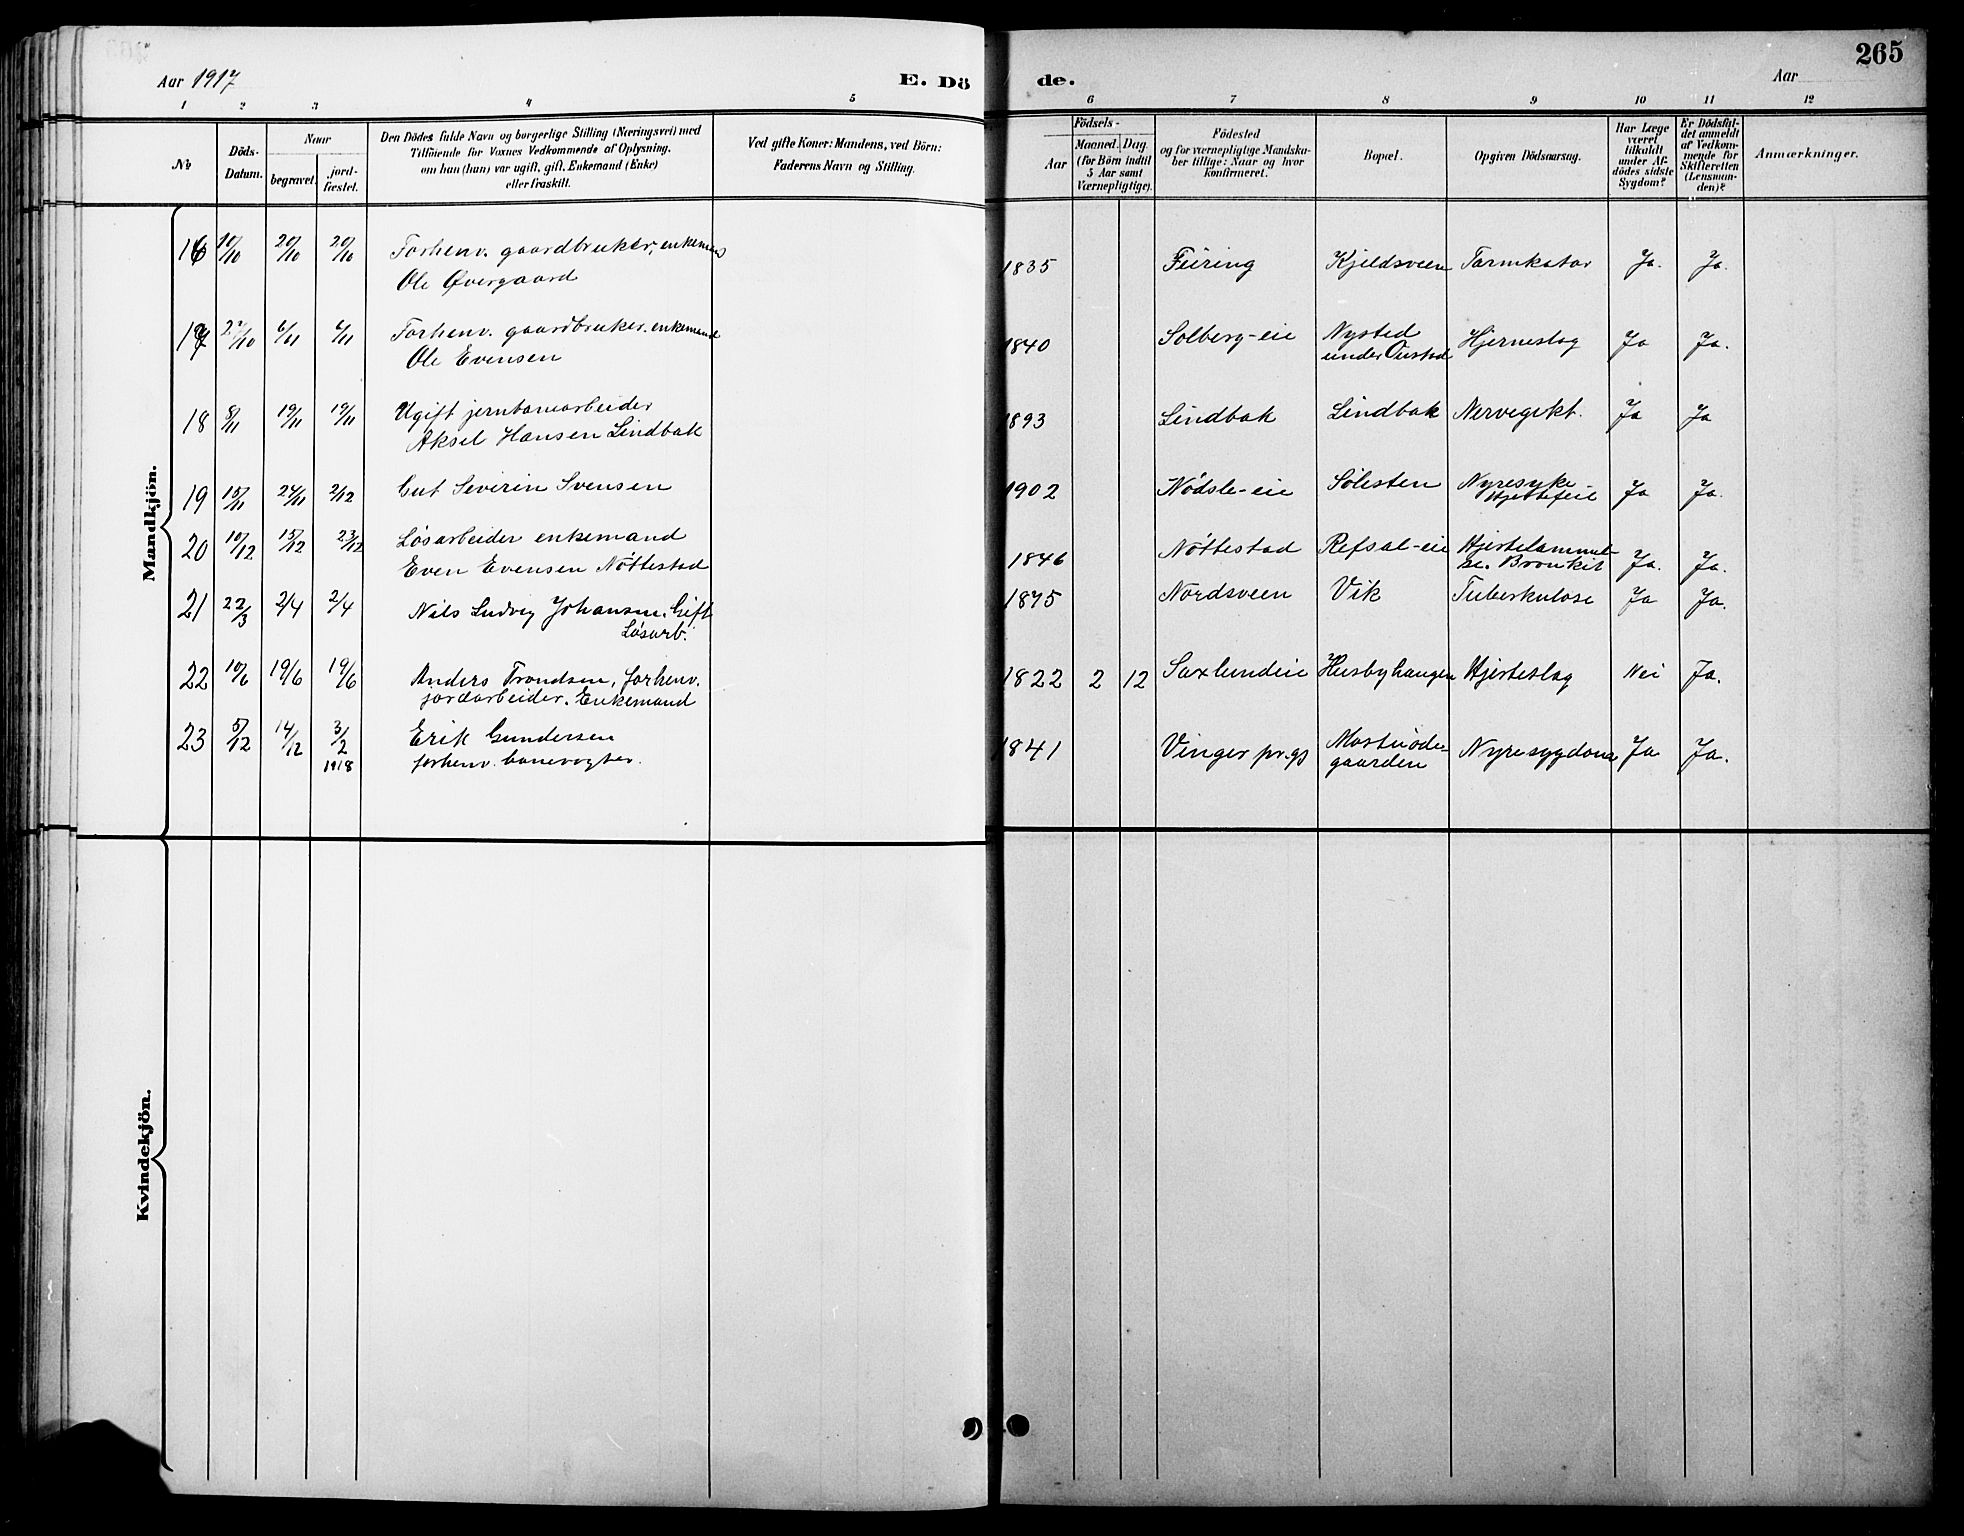 265
Aar 1917
E. Dö
de.
Aar
1 2 3 4 5 6 7 8 9 10 11 12
No
Döds-
Datum.
Naar
begravet.
jord-
fæstet.
Den Dödes fulde Navn og borgerlige Stilling (Næringsvei) med
Tilföiende for Voxnes Vedkommende af Oplysning,
om han (hun) var ugift, gift, Enkemand (Enke)
eller fraskilt.
Ved gifte Koner: Mandens, ved Börn:
Faderens Navn og Stilling.
Födsels-
Aar
Maaned. Dag.
(for Börn indtil
5 Aar samt
Værnepligtige).
Födested
og for værnepligtige Mandska-
ber tillige: Naar og hvor
konfirmeret.
Bopæl.
Opgiven Dödsaarsag.
Har Læge
været
tilkaldt
under Af-
dödes sidste
Sygdom?
Er Dödsfal-
det anmeldt
af Vedkom-
mende for
Skifteretten
(Lensman-
den)?
Anmærkninger.
Mandkjön.
16 10/10 20/10 20/10 Forhenv. gaardbruker, enkemand
Ole Øvergaard
1835 Feiring Kjeldsveen Tarmkatar Ja. Ja.
17 27/10 6/11 6/11 Forhenv. gaardbruker. enkemand
Ole Evensen
1840 Solberg-eie Nysted
under Oustad Hjerneslag Ja Ja.
18 8/11 19/11 19/11 Ugift jernbanearbeider
Aksel Hansen Lindbak
1893 Lindbak Lindbak Nervegikt. Ja Ja
19 15/11 24/11 2/12 Gut Severin Svensen
1902 Nødsle-eie Sølesten Nyresyke-
Hjertefeil Ja Ja.
20 10/12 15/12 23/12 Løsarbeider enkemand
Even Evensen Nøttestad
1846 Nøttestad Refsal-eie Hjertelammel-
se. Bronkit Ja. Ja.
21 22/3 2/4 2/4 Nils Ludvig Johansen. Gift
Løsarb.
1875 Nordsveen Vik Tuberkulose Ja Ja.
22 10/6 19/6 19/6 Anders Trondsen, forhenv.
jordarbeider. Enkemand
1822 2 12 Saxlundeie Husbyhaugen Hjerteslag Nei Ja.
23 5/12 14/12 3/2 Erik Gundersen
1918 forhenv. banevogter.
1841 Vinger pr.gj
gaarden Nyresygdom Ja Ja.
Kvindekjön.